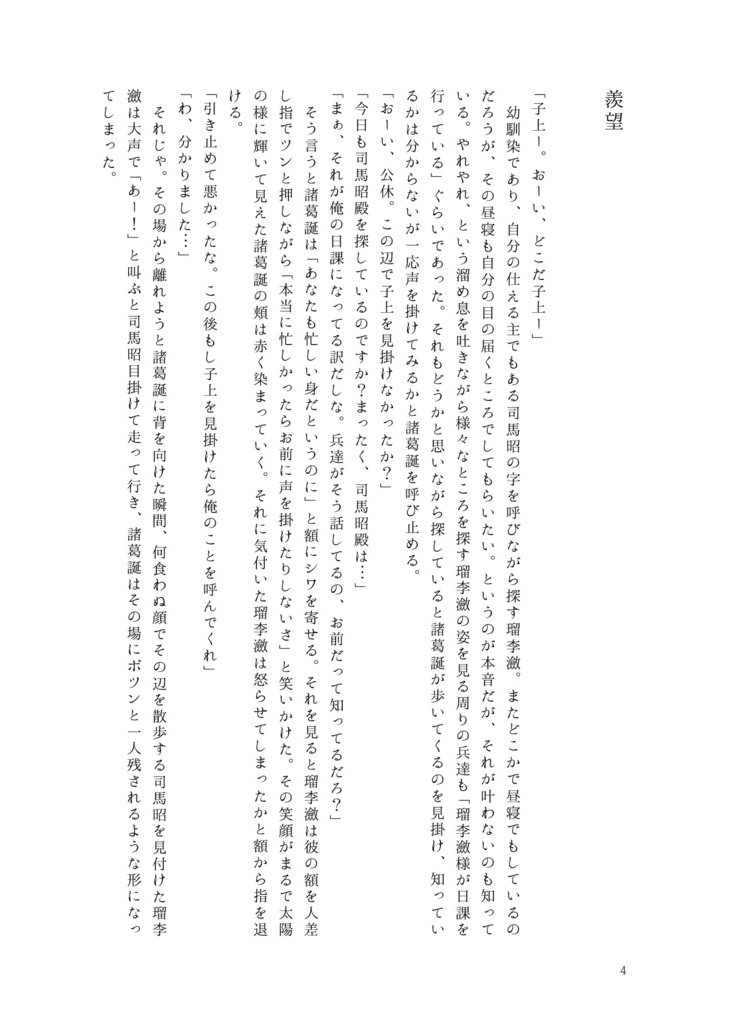 羨望
「子上ー。おーい、どこだ子上ー」
　幼馴染であり、自分の仕える主でもある司馬昭の字を呼びながら探す瑠李瀲。またどこかで昼寝でもしているの
だろうが、その昼寝も自分の目の届くところでしてもらいたい。というのが本音だが、それが叶わないのも知って
いる。やれやれ、という溜め息を吐きながら様々なところを探す瑠李瀲の姿を見る周りの兵達も「瑠李瀲様が日課を
行っている」ぐらいであった。それもどうかと思いながら探していると諸葛誕が歩いてくるのを見掛け、知ってい
るかは分からないが一応声を掛けてみるかと諸葛誕を呼び止める。
「おーい、公休。この辺で子上を見掛けなかったか？」
「今日も司馬昭殿を探しているのですか？まったく、司馬昭殿は…」
「まぁ、それが俺の日課になってる訳だしな。兵達がそう話してるの、お前だって知ってるだろ？」
　そう言うと諸葛誕は「あなたも忙しい身だというのに」と額にシワを寄せる。それを見ると瑠李瀲は彼の額を人差
し指でツンと押しながら「本当に忙しかったらお前に声を掛けたりしないさ」と笑いかけた。その笑顔がまるで太陽
の様に輝いて見えた諸葛誕の頬は赤く染まっていく。それに気付いた瑠李瀲は怒らせてしまったかと額から指を退
ける。
「引き止めて悪かったな。この後もし子上を見掛けたら俺のことを呼んでくれ」
「わ、分かりました…」
　それじゃ。その場から離れようと諸葛誕に背を向けた瞬間、何食わぬ顔でその辺を散歩する司馬昭を見付けた瑠李
瀲は大声で「あー！」と叫ぶと司馬昭目掛けて走って行き、諸葛誕はその場にポツンと一人残されるような形になっ
てしまった。
4